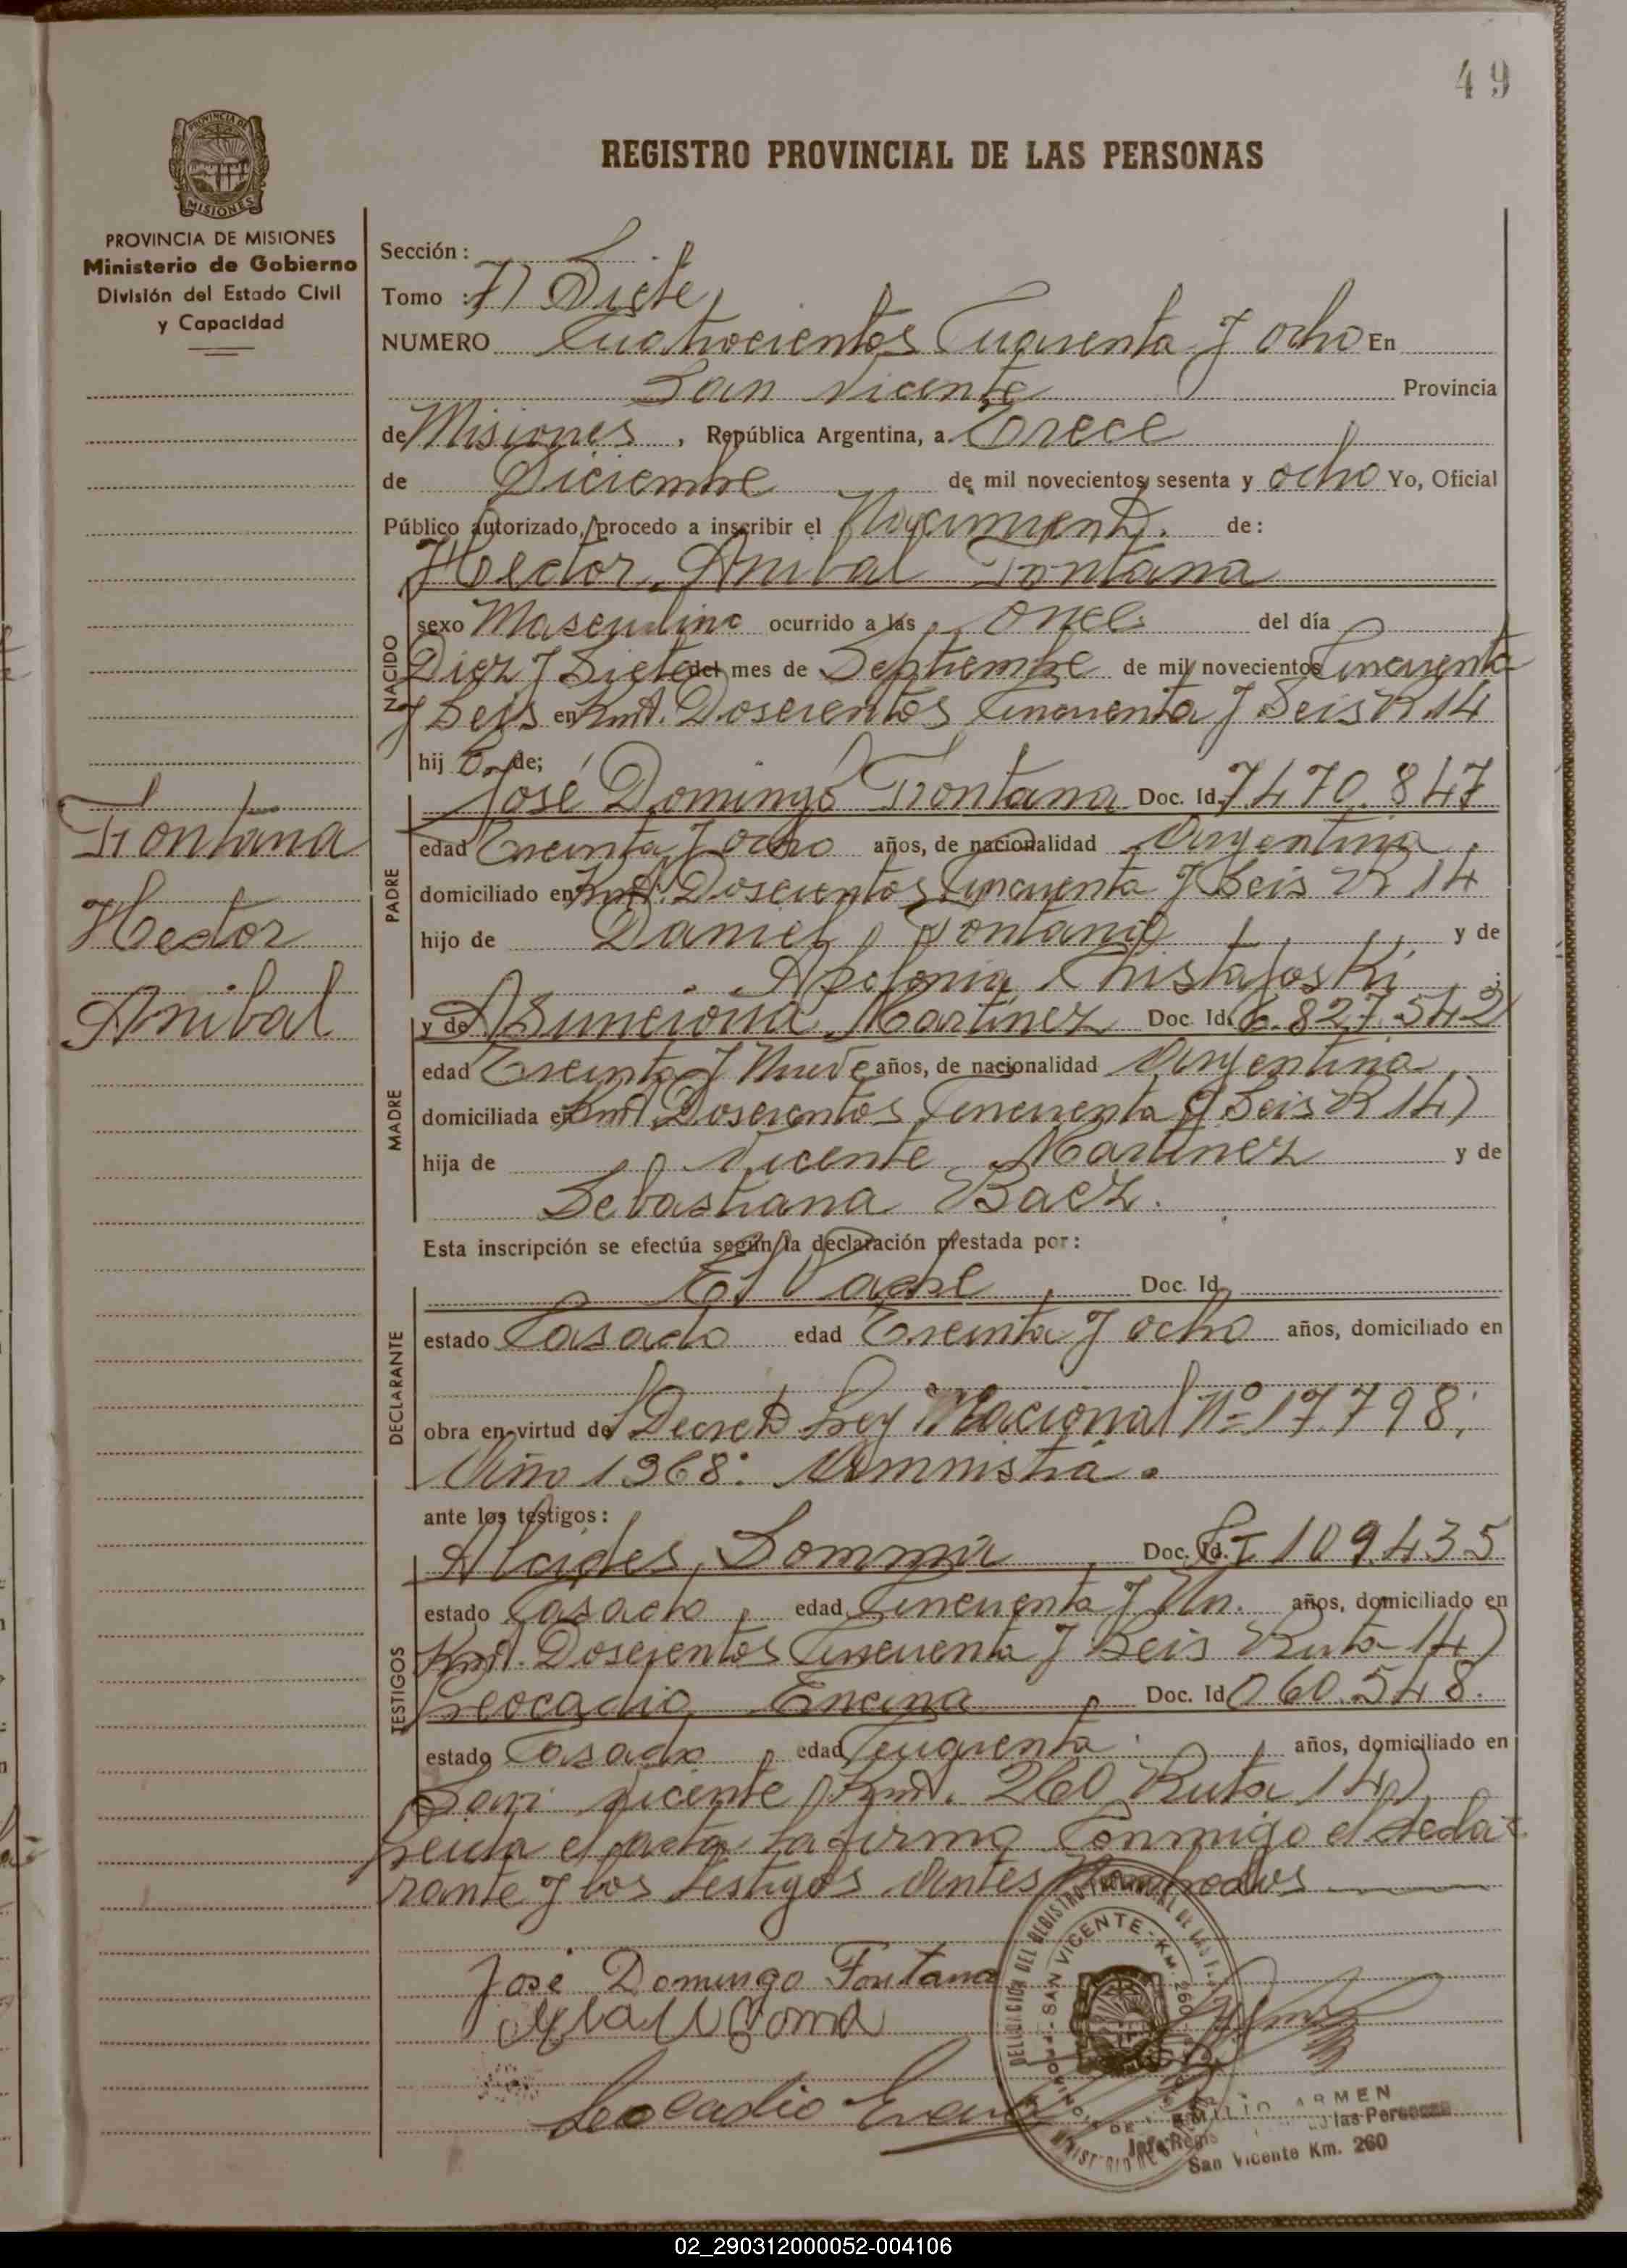 49
PROVINCIA DE
MISIONES
REGISTRO PROVINCIAL DE LAS PERSONAS
PROVINCIA DE MISIONES
Ministerio de Gobierno
División del Estado Civil
y Capacidad
Fontana
Hector
Anibal
Sección :
Tomo : 7) Siete
NUMERO Cuatrocientos Cuarenta y ocho En
San Vicente Provincia
de Misiones , República Argentina, a Trece
de Diciembre de mil novecientos sesenta y ocho Yo, Oficial
Público autorizado, procedo a inscribir el Nacimiento. de:
Hector Anibal Fontana
NACIDO
sexo Masculino ocurrido a las once del día
Diez y Siete del mes de Septiembre de mil novecientos Cincuenta
y Seis en Kmt. Doscientos Cincuenta y Seis R 14
hijo de;
PADRE
José Domingo Fontana Doc. Id. 7470.847
edad Treinta y ocho años, de nacionalidad Argentina
domiciliado en Kmt. Doscientos Cincuenta y Seis R 14
hijo de Daniel Fontana y de
Apolonia Christafoski
MADRE
y de Asunciona Martinez Doc. Id. 6.827.542
edad Treinta y Nueve años, de nacionalidad Argentina
domiciliada en Kmt Doscientos Cincuenta y Seis R 14)
hija de Vicente Martinez y de
Sebastiana Baez.
Esta inscripción se efectúa según la declaración prestada por:
DECLARANTE
El Padre Doc. Id.
estado Casado edad Treinta y ocho años, domiciliado en
obra en virtud de Decreto Ley Nacional Nº 17798;
Año 1968. Amnistia.
ante los testigos:
TESTIGOS
Alcides Somma Doc. Id. I 109.435
estado Casado, edad Cincuenta y Un. años, domiciliado en
Kmt. Doscientos Cincuenta y Seis Ruta 14)
Leocadio Encina Doc. Id. 060.548.
estado Casado edad Cuarenta años, domiciliado en
San Vicente Kmt. 260 Ruta 14)
Leida el acta la firma Conmigo el decla-
rante y los testigos Antes Nombrados
José Domingo Fontana
Soma
Leocadio
DELEGACIÓN DEL REGISTRO PROVINCIAL DE LAS
SAN VICENTE - KM. 260
EMILIO ARMEN
Jefe Regis las Personas
San Vicente Km. 260
02_290312000052-004106